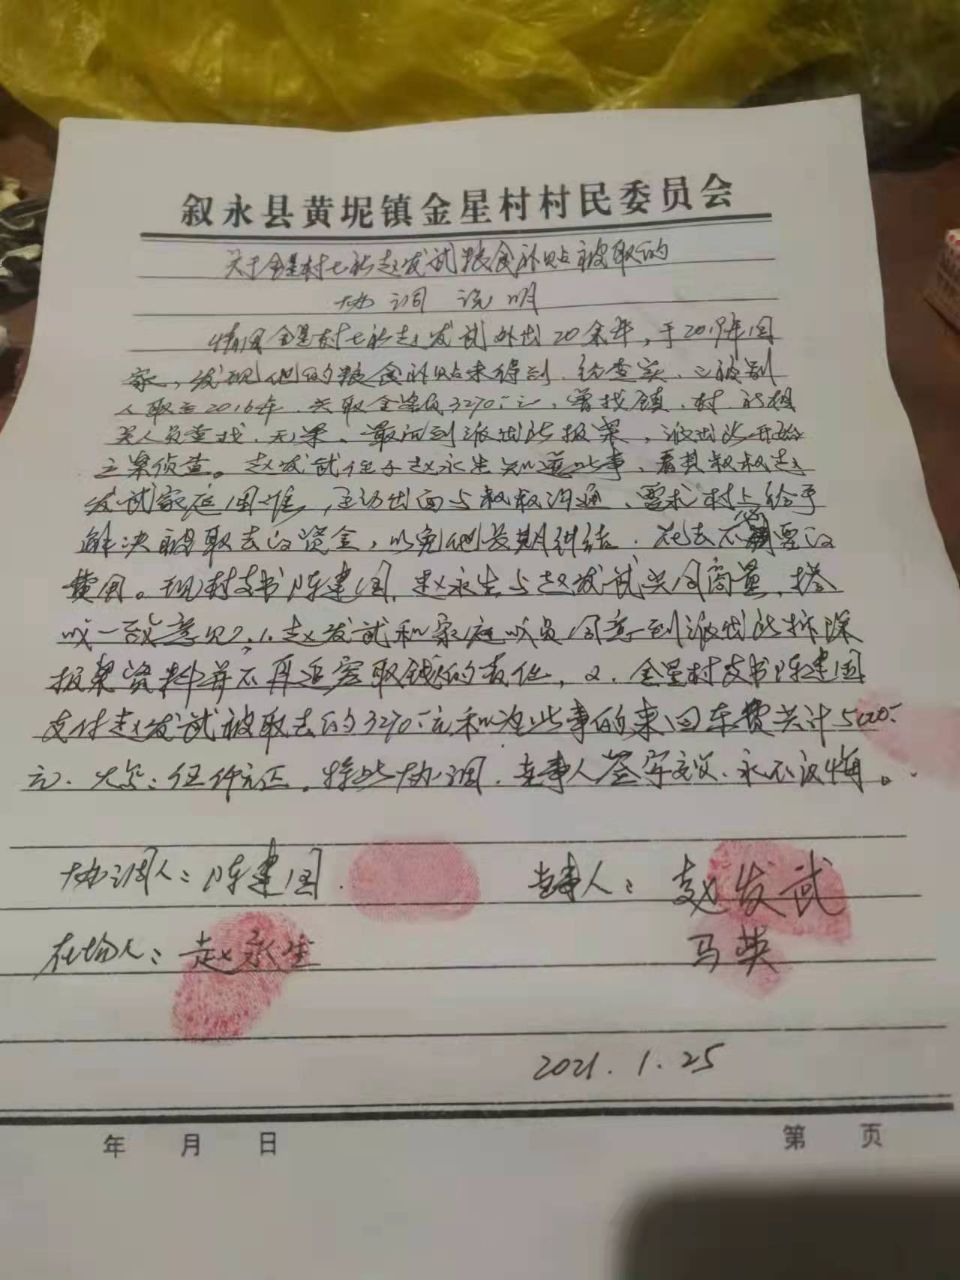 叙永县黄坭镇金星村村民委员会
关于金星村七社赵发武粮食补贴被取的
协调说明
情因金星村七社赵发武外出20余年，于2019年回
家，发现他的粮食补贴未得到，经查实，已被别
人取至2016年，共取金额为3270元，曾找镇、村、社相
关人员查找，无果，最后到派出所报案，派出所开始
立案侦查。赵发武侄子赵永生知道此事，看其叔叔赵
发武家庭困难，主动出面与叔叔沟通，要求村上给予
解决被取去的资金，以免他长期纠结，花去不必要的
费用。现村支书陈建国，赵永生与赵发武共同商量，搭
成一致意见，1.赵发武和家庭成员同意到派出所拆除
报案资料并不再追究取钱的责任，2.金星村支书陈建国
支付赵发武被取去的3270元和为此事的来回车费共计5000
元，大写：伍仟元正。特此协调，当事人签字生效，永不议悔。
协调人：陈建国 当事人：赵发武
在场人：赵永生 马英
2021.1.25
年 月 日 第 页